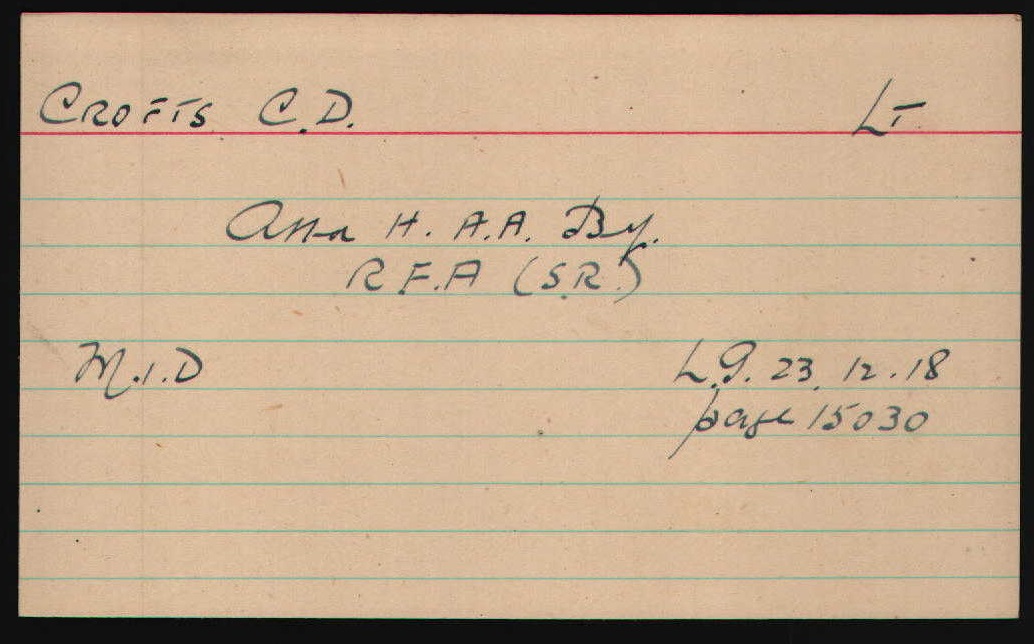 CROFTS C.D. LT
Attd H. A.A. By.
R.F.A (S.R.)
M.I.D L.G. 23.12.18
page 15030